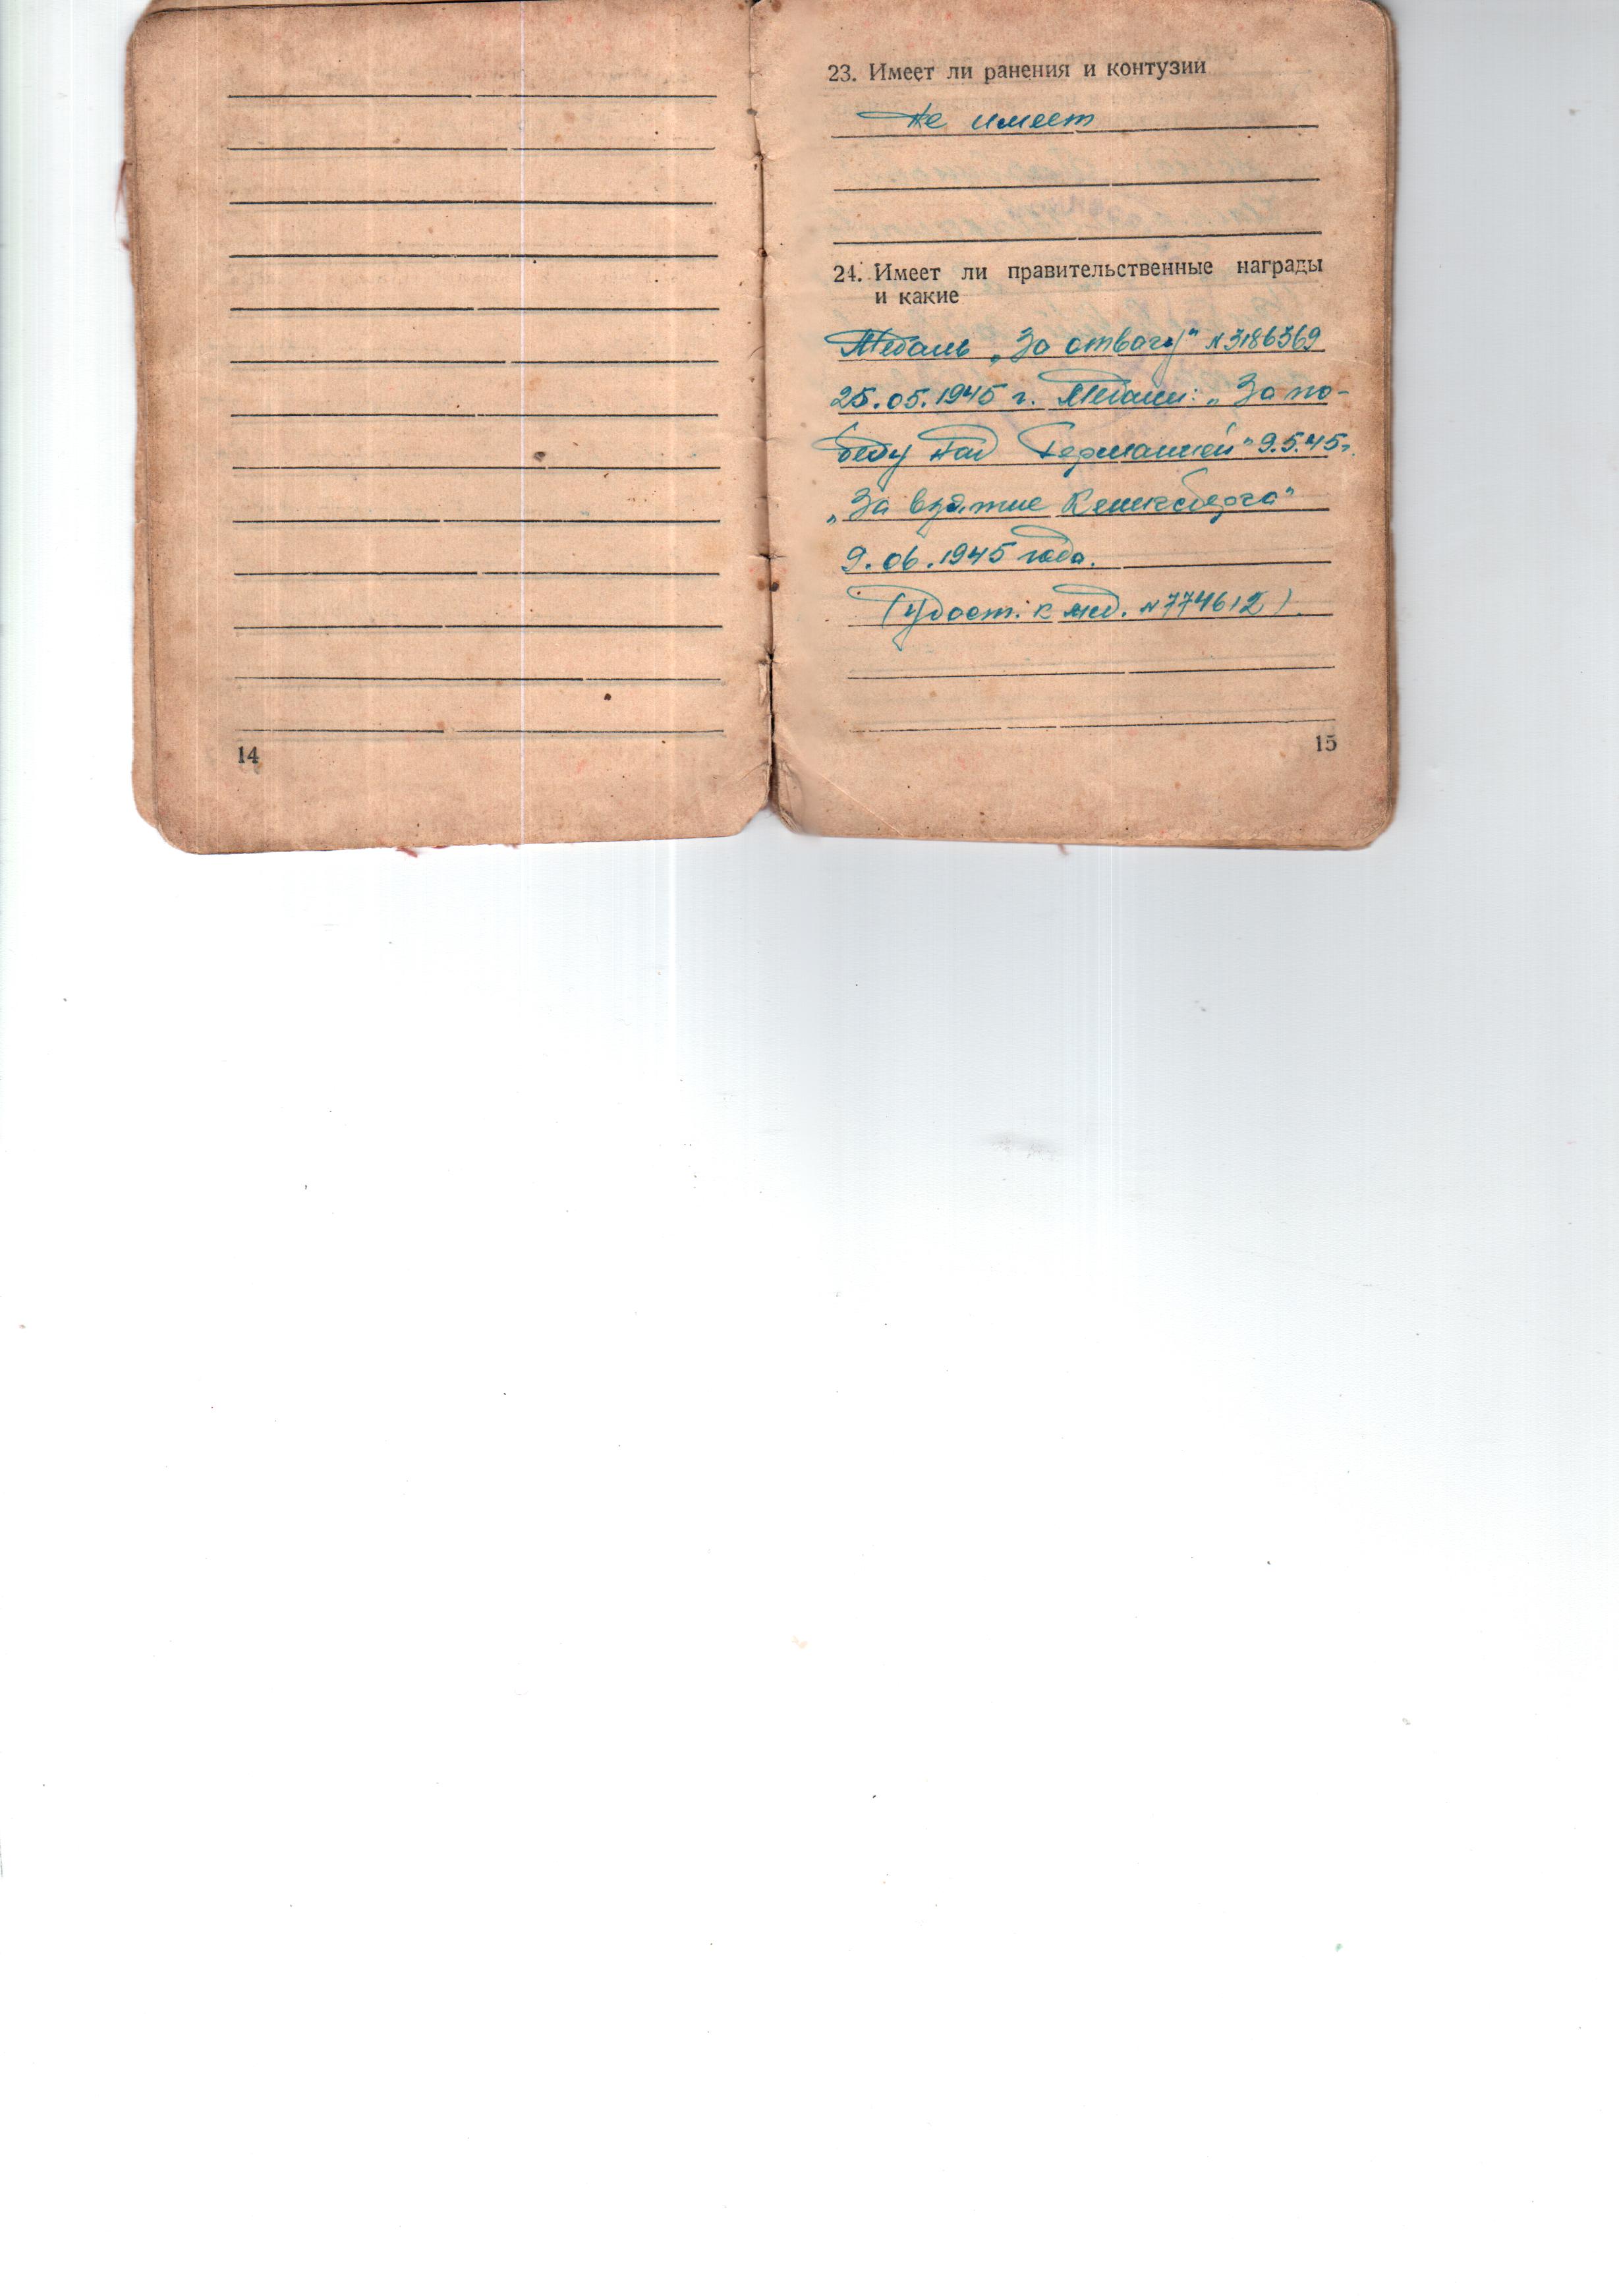 14
23. Имеет ли ранения и контузии
Не имеет
24. Имеет ли правительственные награды
и какие
Медаль „За отвагу" №3186369
25.05.1945 г. Медали: „За по-
беду над Германией" 9.5.45г.
„За взятие Кенигсберга"
9.06.1945 года.
(удост. к мед. №774612)
15